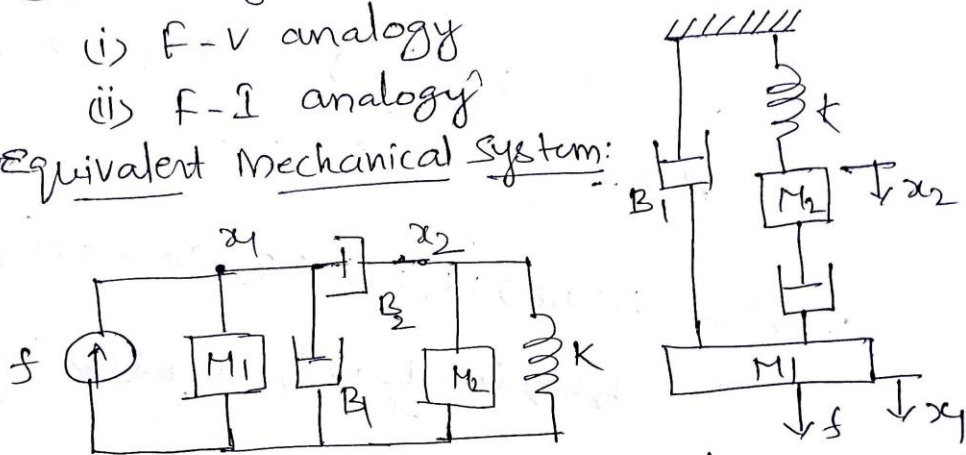 (i) F-V analogy
(ii) F-I analogy
Equivalent Mechanical System:
K
B1
M2
x2
x1
x2
B2
f
M1
B1
M2
K
M1
f
x1